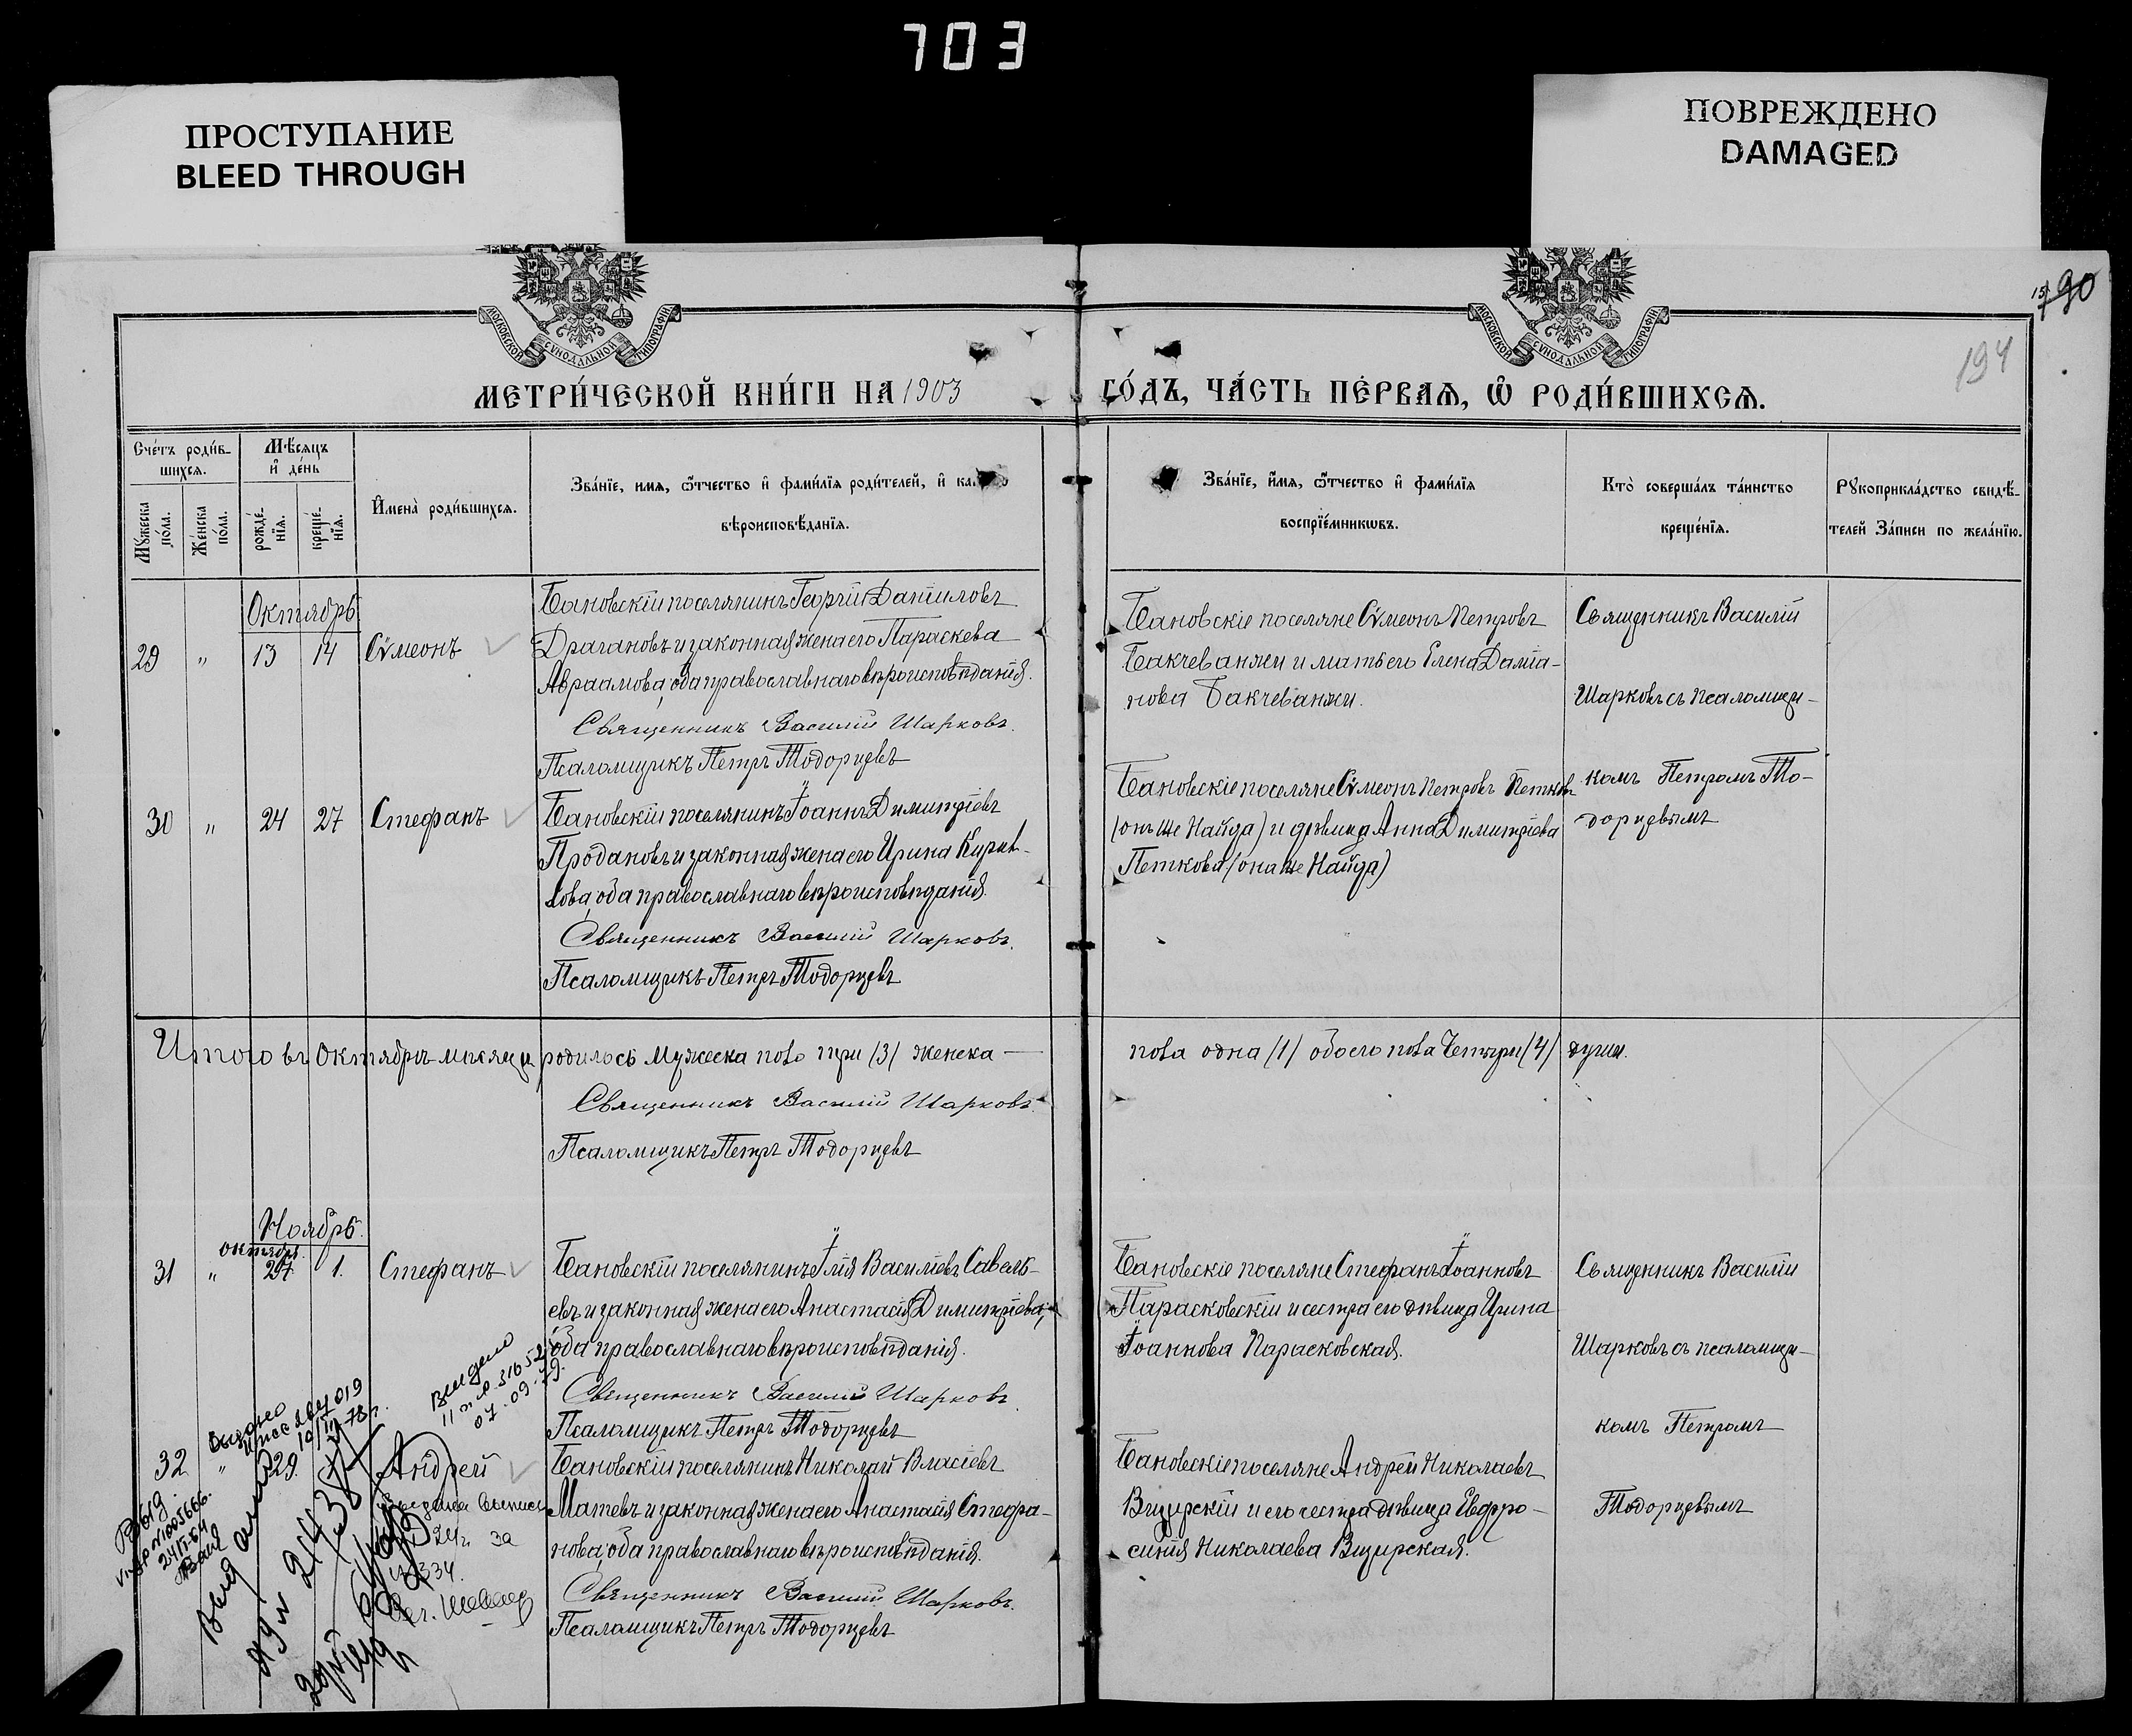 703
ПРОСТУПАНИЕ
BLEED THROUGH
ПОВРЕЖДЕНО
DAMAGED
МОСКОВСКОЙ СѴНОДАЛЬНОЙ ТИПОГРАФІИ
МОСКОВСКОЙ СѴНОДАЛЬНОЙ ТИПОГРАФІИ
90
194
МЕТРИ́ЧЕСКОЙ КНИ́ГИ НА 1903
ГО́ДЪ, ЧА́СТЬ ПЕ́РВАѦ, Ѡ҆ РОДИ́ВШИХСѦ.
Сче́тъ роди́в-
шихсѧ.
Мѣ́сѧцъ
и҆ де́нь
Мꙋ́жеска
по́ла.
Же́нска
по́ла.
рожде́-
нїѧ.
креще́-
нїѧ.
И҆мена̀ роди́вшихсѧ.
Зва́нїе, имѧ, ѻ҆́тчество и҆ фами́лїѧ роди́телей, и҆
вѣроисповѣ́данїѧ.
Зва́нїе, и҆́мѧ, ѻ҆́тчество и҆ фами́лїѧ
воспрїе́мникѡвъ.
Кто̀ соверша́лъ та́инство
креще́нїѧ.
Рꙋкоприкла́дство свидѣ́-
телей За́писи по жела́нїю.
Октябрь
29 " 13 14 Сѵмеонъ
Бановскій поселянинъ Георгій Даніиловъ
Драгановъ и законная жена его Параскева
Авраамова, оба православнаго вѣроисповѣданія.
Священникъ Василій Шарковъ.
Псаломщикъ Петръ Тодорцевъ
Бановскіе поселяне Сѵмеонъ Петровъ
Бакчеванжи и мать его Елена Даміа-
нова Бакчеванжи.
Священникъ Василій
Шарковъ съ псаломщи-
комъ Петромъ То-
дорцевымъ
30 " 24 27 Стефанъ
Бановскій поселянинъ Іоаннъ Димитріевъ
Продановъ и законная жена его Ирина Кирил-
лова, оба православнаго вѣроисповѣданія.
Священникъ Василій Шарковъ.
Псаломщикъ Петръ Тодорцевъ
Бановскіе поселяне Сѵмеонъ Петровъ Петковъ
(онъ же Найда) и дѣвица Анна Димитріева
Петкова (она же Найда)
Итого въ Октябрѣ мѣсяцѣ родилось мужеска пола три /3/ женска —
пола одна /1/ обоего пола четыри /4/ души.
Священникъ Василій Шарковъ.
Псаломщикъ Петръ Тодорцевъ
Ноябрь.
октября.
31 " 27 1. Стефанъ
Бановскій поселянинъ Илія Василіевъ Савель-
евъ и законная жена его Анастасія Димитріева,
оба православнаго вѣроисповѣданія.
Священникъ Василій Шарковъ.
Псаломщикъ Петръ Тодорцевъ
Бановскіе поселяне Стефанъ Іоанновъ
Парасковскій и сестра его дѣвица Ирина
Іоаннова Парасковская.
Священникъ Василій
Шарковъ съ псаломщи-
комъ Петромъ
Тодорцевымъ
32 " 29. Андрей
Бановскій поселянинъ Николай Власіевъ
Матевъ и законная жена его Анастасія Стефа-
нова, оба православнаго вѣроисповѣданія.
Священникъ Василій Шарковъ.
Псаломщикъ Петръ Тодорцевъ
Бановскіе поселяне Андрей Николаевъ
Визирскій и его сестра дѣвица Евфро-
синія Николаева Визирская.
07.09.79.